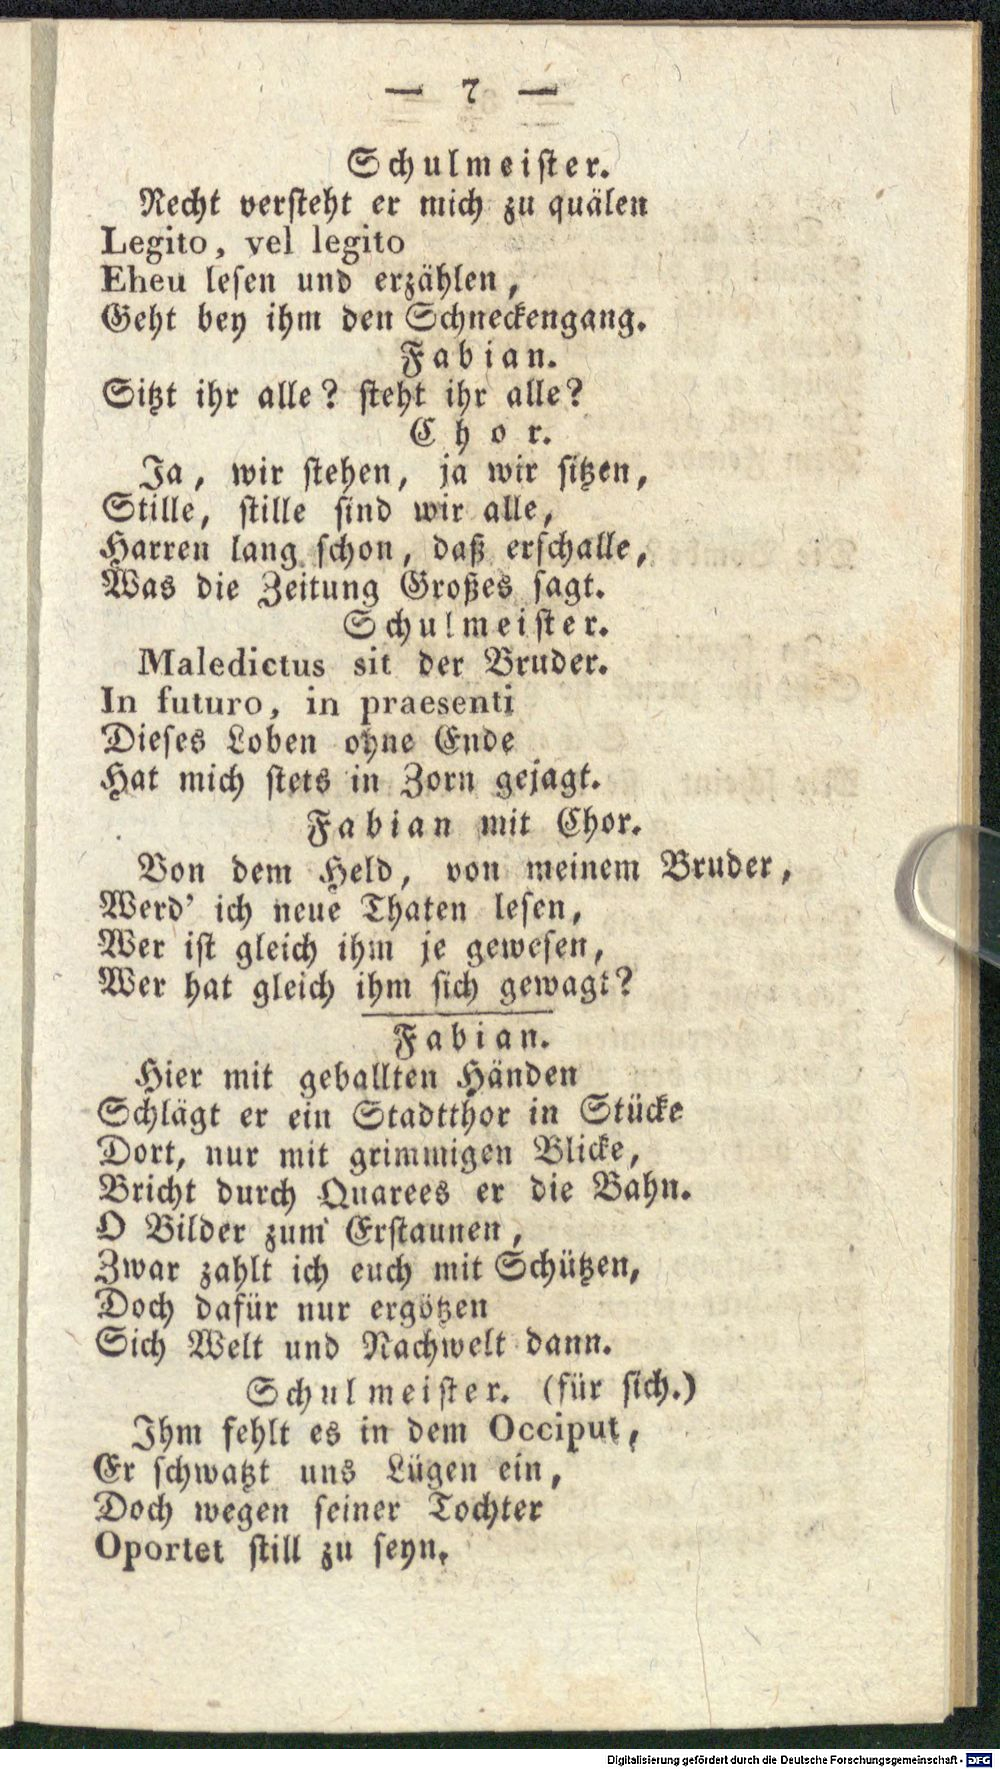 — 7 —
Schulmeister.
Recht versteht er mich zu quälen
Legito, vel legito
Eheu lesen und erzählen,
Geht bey ihm den Schneckengang.
Fabian.
Sitzt ihr alle? steht ihr alle?
Chor.
Ja, wir stehen, ja wir sitzen,
Stille, stille sind wir alle,
Harren lang schon, daß erschalle,
Was die Zeitung Großes sagt.
Schulmeister.
Maledictus sit der Bruder.
In futuro, in praesenti
Dieses Loben ohne Ende
Hat mich stets in Zorn gejagt.
Fabian mit Chor.
Von dem Held, von meinem Bruder,
Werd' ich neue Thaten lesen,
Wer ist gleich ihm je gewesen,
Wer hat gleich ihm sich gewagt?
Fabian.
Hier mit geballten Händen
Schlägt er ein Stadtthor in Stücke
Dort, nur mit grimmigen Blicke,
Bricht durch Quarees er die Bahn.
O Bilder zum Erstaunen,
Zwar zahlt ich euch mit Schützen,
Doch dafür nur ergötzen
Sich Welt und Nachwelt dann.
Schulmeister. (für sich.)
Ihm fehlt es in dem Occiput,
Er schwatzt uns Lügen ein,
Doch wegen seiner Tochter
Oportet still zu seyn.
Digitalisierung gefördert durch die Deutsche Forschungsgemeinschaft - DFG